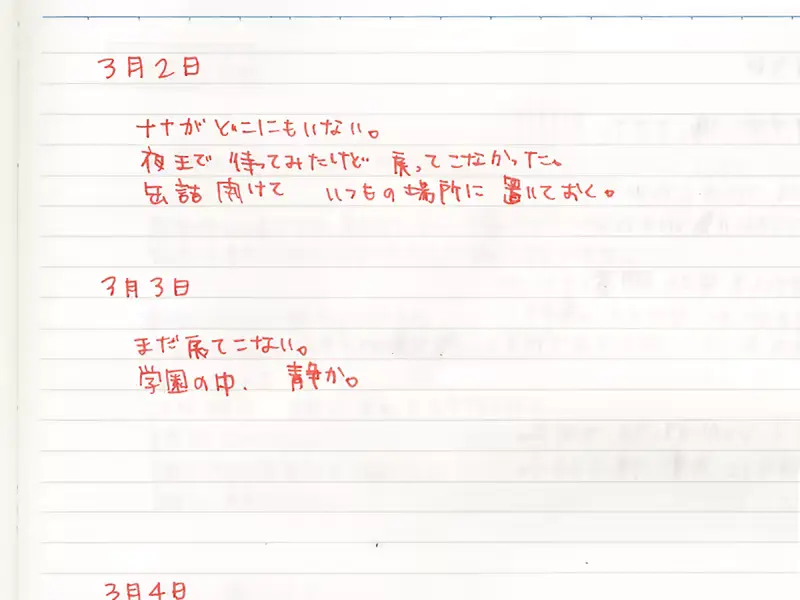 3月2日
ナナがどこにもいない。
夜まで 待ってみたけど 戻ってこなかった。
缶詰 開けて いつもの場所に 置いておく。
3月3日
まだ戻てこない。
学園の中、 静か。
3月4日